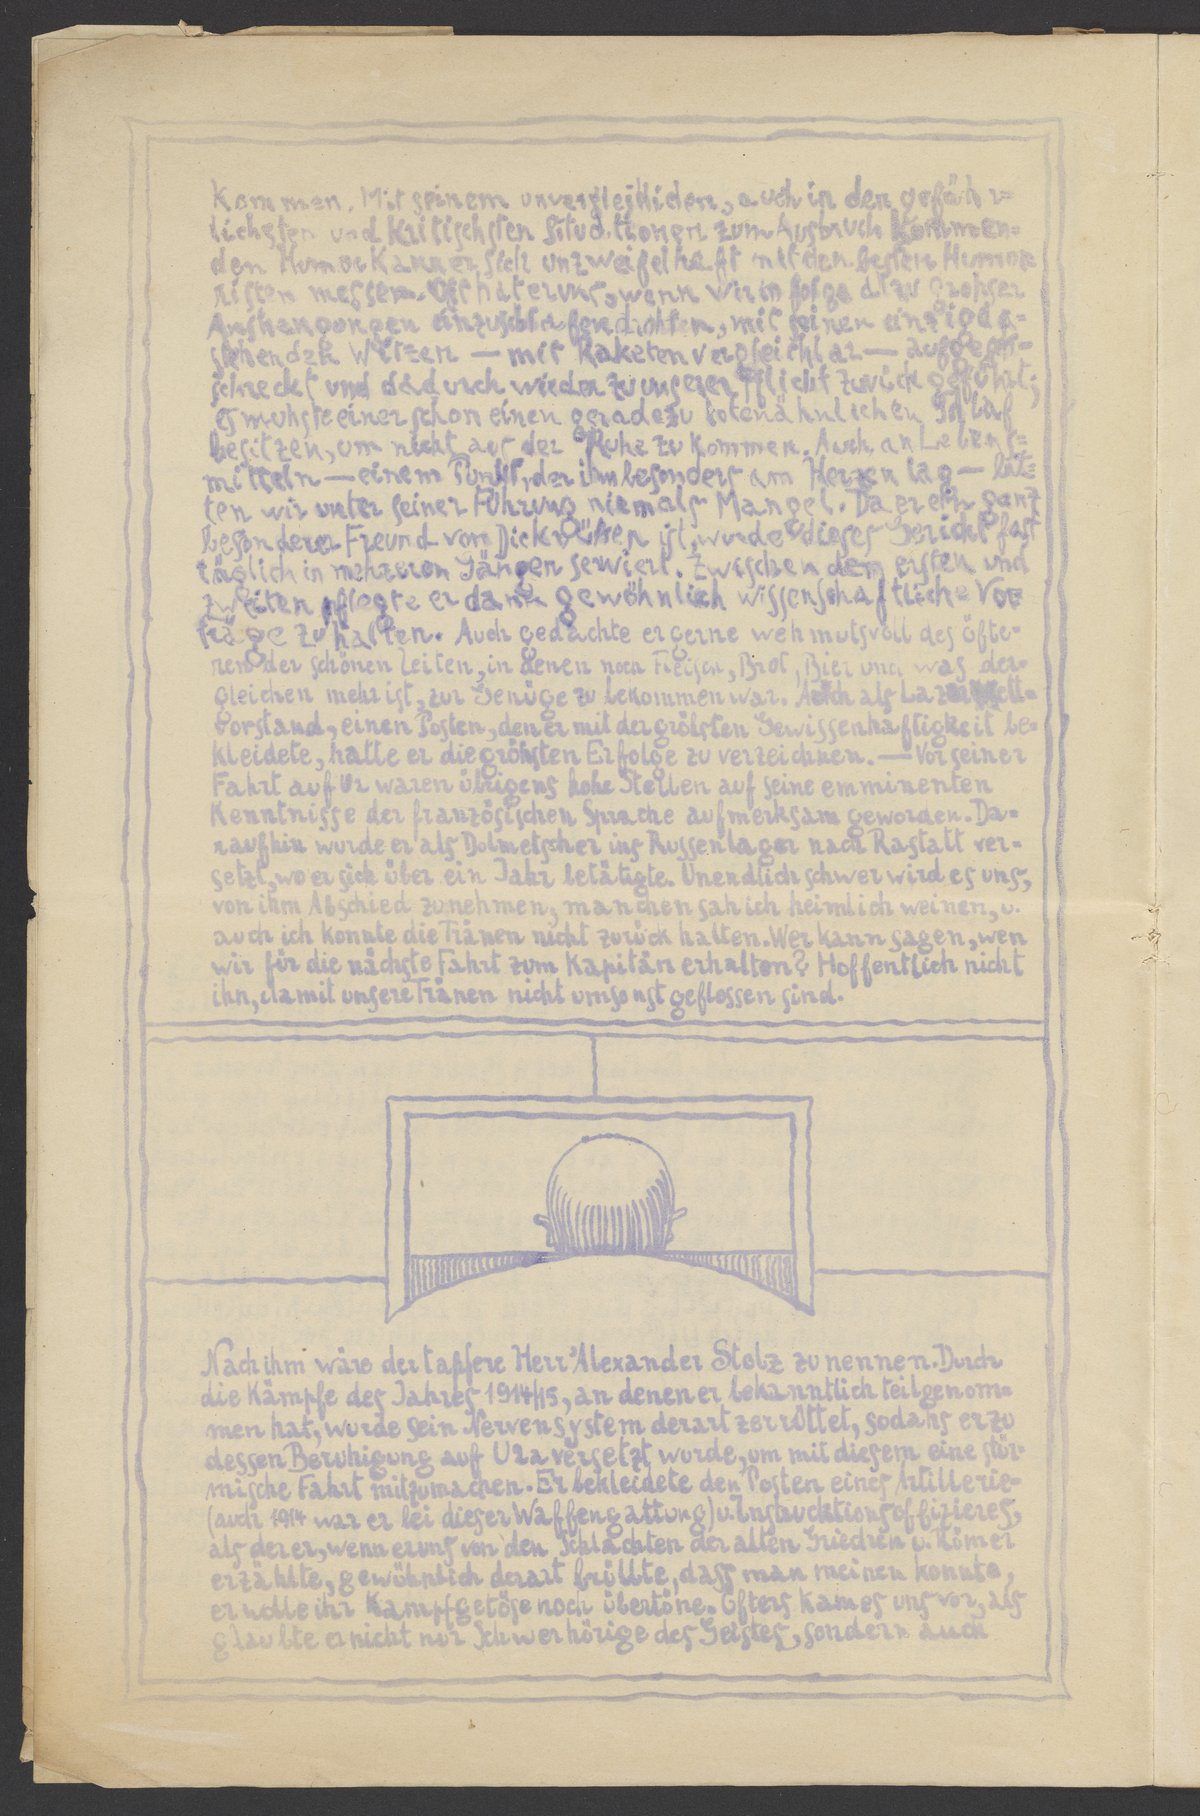 kommen. Mit seinem unvergleichlichen, auch in den gefähr=
lichsten und kritischsten Situationen zum Ausbruch kommen=
den Humor kann er sich unzweifelhaft mit den besten Humo
risten messen. Oft hat er uns, wenn wir infolge allzu grohser
Anstrengungen einzuschlafen drohten, mit seinen einzigda=
stehenden Witzen — mit Raketen vergleichbar — aufge
schreckt und dadurch wieder zu unserer Pflicht zurückgeführt;
es muhste einer schon einen geradezu totenähnlichen Schlaf
besitzen, um nicht aus der Ruhe zu kommen. Auch an Lebens=
mitteln — einem Punkt, der ihm besonders am Herzen lag — lit=
ten wir unter seiner Führung niemals Mangel. Da er ein ganz
besonderer Freund von Dickrüben ist, wurde dieses Gericht fast
täglich in mehreren Gängen serviert. Zwischen dem ersten und
zweiten pflegte er dann gewöhnlich wissenschaftliche Vor
träge zu halten. Auch gedachte er gerne wehmutsvoll des öfte=
ren der schönen Zeiten, in denen noch Fleisch, Brot, Bier und was der=
gleichen mehr ist, zur Genüge zu bekommen war. Auch als Lazarett=
vorstand, einen Posten, den er mit der gröhsten Gewissenhaftigkeit be=
kleidete, hatte er die gröhsten Erfolge zu verzeichnen. — Vor seiner
Fahrt auf Ur waren übrigens hohe Stellen auf seine emminenten
Kenntnisse der französischen Sprache aufmerksam geworden. Da=
raufhin wurde er als Dolmetscher ins Russenlager nach Rastatt ver=
setzt, wo er sich über ein Jahr betätigte. Unendlich schwer wird es uns,
von ihm Abschied zu nehmen, manchen sah ich heimlich weinen, u.
auch ich konnte die Tränen nicht zurück halten. Wer kann sagen, wen
wir für die nächste Fahrt zum Kapitän erhalten? Hoffentlich nicht
ihn, damit unsere Tränen nicht umsonst geflossen sind.
Nach ihm wäre der tapfere Herr Alexander Stolz zu nennen. Durch
die Kämpfe des Jahres 1914/15, an denen er bekanntlich teilgenom=
men hat, wurde sein Nervensystem derart zerrüttet, sodahs er zu
dessen Beruhigung auf Ura versetzt wurde, um mit diesem eine stür=
mische Fahrt mitzumachen. Er bekleidete den Posten eines Artillerie=
(auch 1914 war er bei dieser Waffengattung) u. Instrucktionsoffizieres,
als der er, wenn er uns von den Schlachten der alten Griechen u. Römer
erzählte, gewöhnlich derart brüllte, dass man meinen konnte,
er wolle ihr Kampfgetöse noch übertöne. Öfters kam es uns vor, als
glaubte er nicht nur Schwerhörige des Geistes, sondern auch